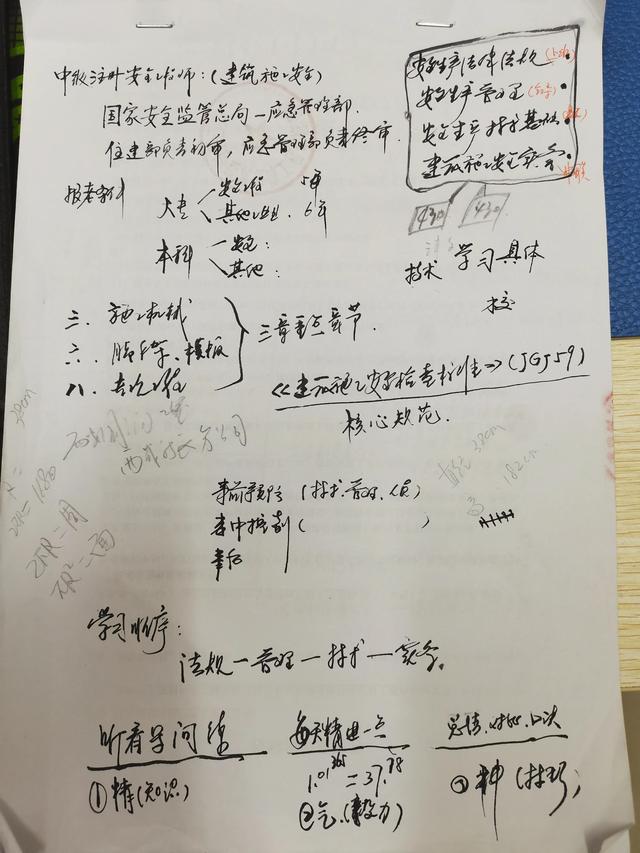 中级注册安全工程师：（建筑施工安全）
国家安全监管总局—应急管理部
住建部负责初审，应急管理部负责终审
安全生产法律法规
安全生产管理
安全生产技术基础
建筑施工安全实务
430 430
报考条件
大专 安全工程 5年
其他专业 6年
本科 安全：
其他：
技术 学习具体
三、施工机械
六、脚手架、模板
八、专项工程
三章重点章节
《建筑施工安全检查标准》(JGJ59)
核心规范
38cm
直径 38cm
高：182cm
2πR=周
πR²=面
事前预防（技术、管理、人员）
事中控制（ ）
事后
学习顺序：
法规—管理—技术—实务。
听看写问练
每天精进一点
总结、对比、口诀
1.01³⁶⁵=37.78
①精(知识)
②气(毅力)
③神(技巧)